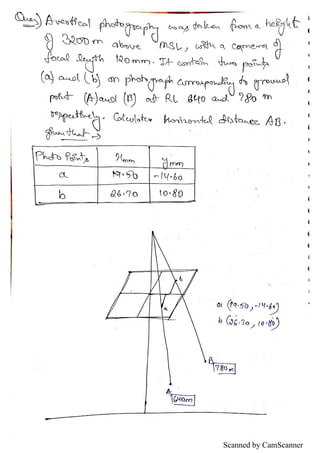 Ques) A vertical photography was taken from a height
of 3200 m above MSL, with a camera of
focal length 120 mm. It contain two points
(a) and (b) on photograph corresponding to ground
point (A) and (B) at RL 640 and 780 m
respectively. Calculate horizontal distance AB.
given that →
Photo Points x mm y mm
a 19.50 -14.60
b 26.70 10.80
b
a
a (19.50, -14.60)
b (26.70, 10.80)
B
780 m
A
640m
Scanned by CamScanner